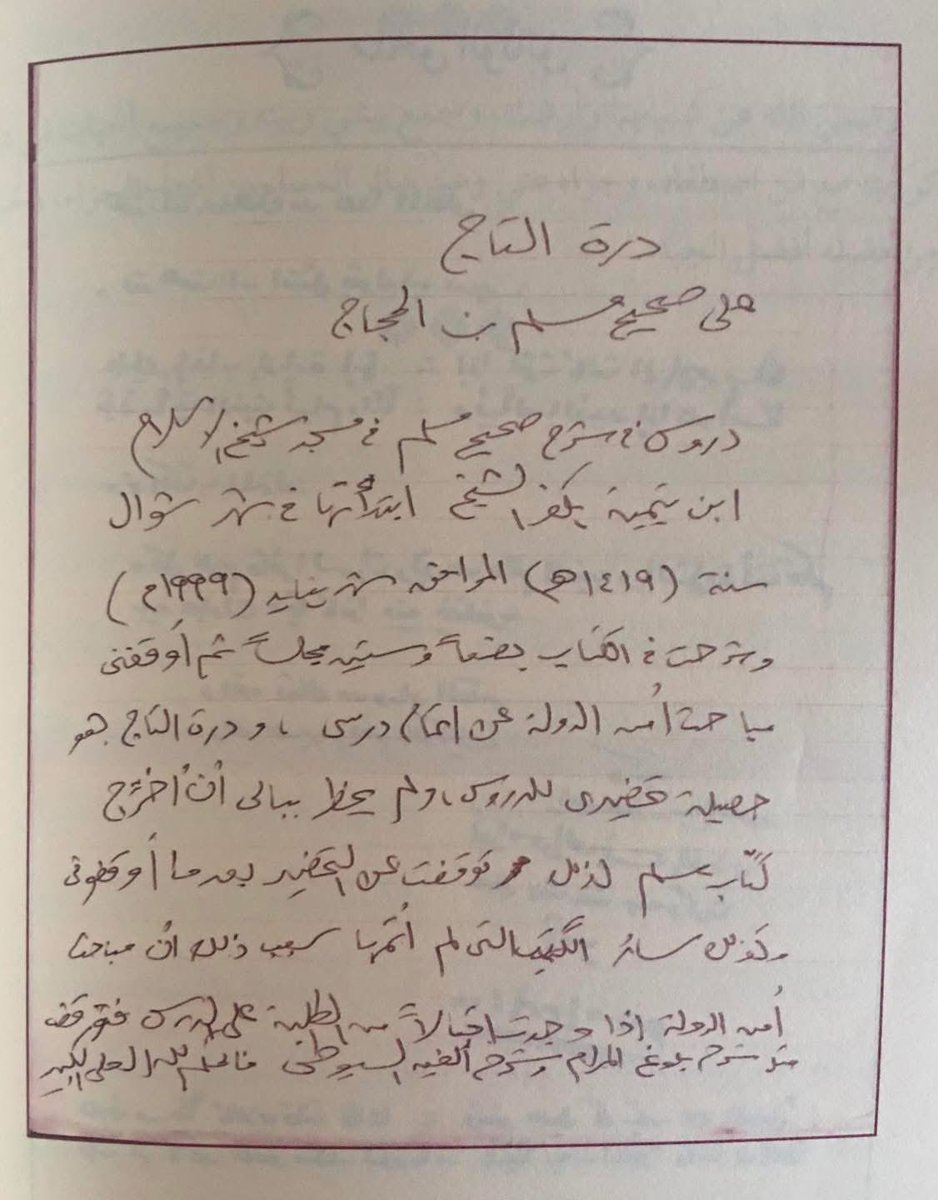 درة التاج
على صحيح مسلم بن الحجاج
دروس في شرح صحيح مسلم في مسجد شيخ الإسلام
ابن تيمية بكفر الشيخ ابتدأتها في شهر شوال
سنة (١٤١٩هـ) الموافق شهر يناير (١٩٩٩م)
وشرحت في الكتاب بضعاً وستين مجلساً ثم أوقفني
مباحث أمن الدولة عن إتمام درسي، ودرة التاج هو
حصيلة تحضيري للدروس، ولم يخطر ببالي أن أُخرِّج
كتاب مسلم لذلك توقفت عن التحضير بعدما أوقفوني
وكذلك سائر الكتب التي لم أتمها سبب ذلك أن مباحث
أمن الدولة إذا وجدت إقبالاً من الطلبة على الدرس
شرح بلوغ المرام وشرح ألفية السيوطي فالحكم لله العلي الكبير